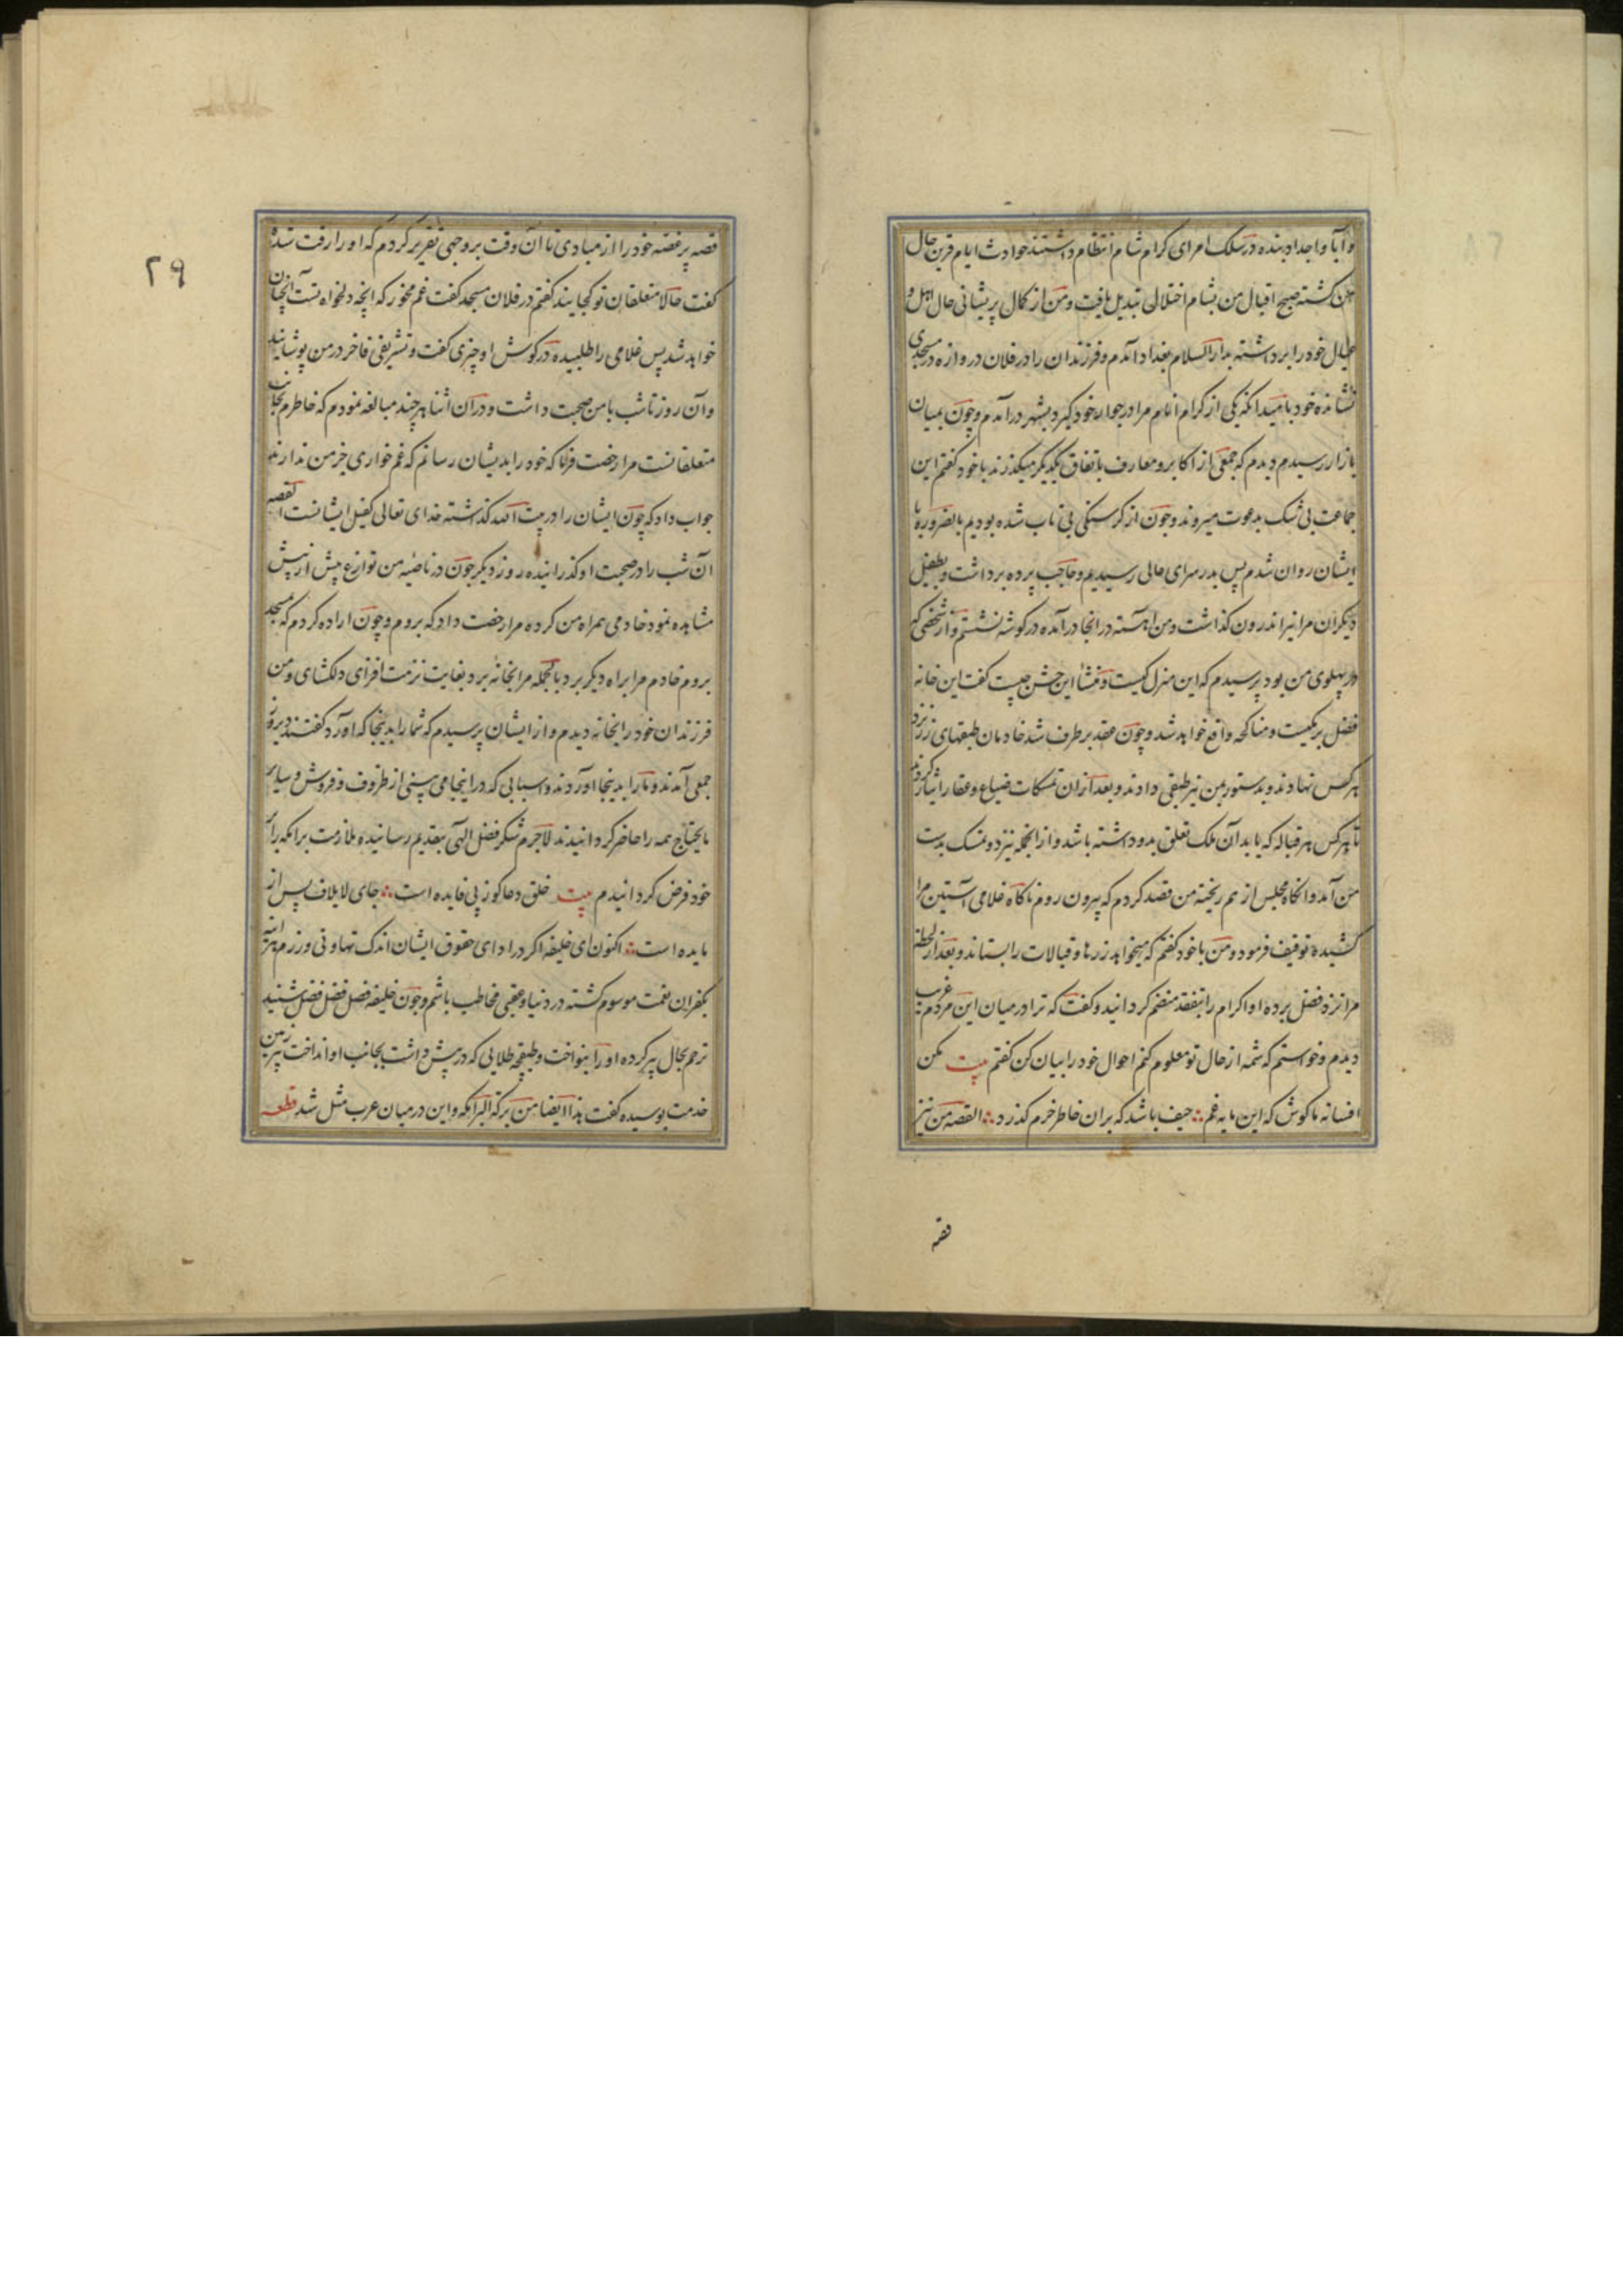 و آبا و اجداد بنده در سلک امرای کرام شام انتظام داشتند حوادث ایام قرین حال
من کشته صبح اقبال من بشام اختلالی تبدیل یافت و من از کمال پریشانی حال اهل و
عیال خود را برداشته بدار السلام بغداد آمدم و فرزندان را در فلان دروازه در مسجدی
نشانده خود بامید آنکه یکی از کرام انام مرا در جوار خود کیرد بشهر درآمدم و چون بمیان
بازار رسیدم دیدم که جمعی از اکابر و معارف باتفاق یکدیکر میکذرند با خود کفتم این
جماعت بی شک بدعوت میروند و چون از کرسنکی بی تاب شده بودیم بالضروره با
ایشان روان شدم پس بدر سرای عالی رسیدیم و حاجب پرده برداشت و بطفیل
دیکران مرا نیز اندرون کذاشت و من آهسته در انجا درآمده در کوشه نشستم و از شخصی که
در پهلوی من بود پرسیدم که این منزل کیست و منشأ این جشن چیست کفت این خانه
فضل برمکیست و مناکحه واقع خواهد شد و چون عقد برطرف شد خادمان طبقهای زر نزد
هر کس نهادند و بدستور بمن نیز طبقی دادند و بعد از ان تمسکات ضیاع و عقار ایثار کردند
تا هر کس هر قباله که یابد آن ملک تعلق بدو داشته باشد و از انجمله نیز دو تمسک بدست
من آمد و انکاه مجلس از هم ریخته من قصد کردم که بیرون روم ناکاه غلامی آستین مرا
کشیده توقیف فرمود و من با خود کفتم که میخواهد زرها و قبالات را بستاند و بعد از لحظه
مرا نزد فضل برده او اکرام را بتفقد منضم کردانید و کفت که ترا در میان این مردم غریب
دیدم و خواستم که شمه از حال تو معلوم کنم احوال خود را بیان کن کفتم بیت مکن
افسانه ما کوش که این مایه غم ؞ حیف باشد که بران خاطر خرم کذرد ؞ القصه من نیز
قصه
۲۹
قصه پر غصه خود را از مبادی تا آن وقت بر وجهی تقریر کردم که او را رقت شده
کفت حالا متعلقان تو کجایند کفتم در فلان مسجد کفت غم مخور که انچه دلخواه تست آنچنان
خواهد شد پس غلامی را طلبیده در کوش او چیزی کفت و تشریفی فاخر در من پوشانید
و آن روز تا شب با من صحبت داشت و در ان اثنا هر چند مبالغه نمودم که خاطرم بجانب
متعلقانست مرا رخصت فرما که خود را بدیشان رسانم که غمخواری جز من ندارند
جواب داد که چون ایشان را در بیت الله کذاشته خدای تعالی کفیل ایشانست القصه
آن شب را در صحبت او کذرانیده روز دیکر چون در ناصیه من توازع بیش از پیش
مشاهده نمود خادمی همراه من کرده مرا رخصت داد که بروم و چون اراده کردم که بمسجد
بروم خادم مرا براه دیکر برد بالجمله مرا بخانه برد بغایت نزهت افزای دلکشای و من
فرزندان خود را بخانه دیدم و از ایشان پرسیدم که شما را بدینجا که آورد کفتند دیروز
جمعی آمدند و ما را بدینجا آوردند و اسبابی که در اینجا می بینی از ظروف و فروش و سایر
مایحتاج همه را حاضر کردانیدند لاجرم شکر فضل الهی بتقدیم رسانیده ملازمت برامکه را بر
خود فرض کردانیدم بیت خلق دعاکوز پی فایده است ؞ جای لایلاف پس از
مایده است ؞ اکنون ای خلیفه اکر در ادای حقوق ایشان اندک تهاونی ورزم البته
بکفران نعمت موسوم کشته در دنیا و عقبی مخاطب باشم و چون خلیفه فصل فضل فضل شنید
ترحم بحال پیر کرده او را بنواخت و طبقچه طلایی که در پیش داشت بجانب او انداخت پیر زمین
خدمت بوسیده کفت هذا ایضا من برکة البرامکه و این در میان عرب مثل شد قطعه